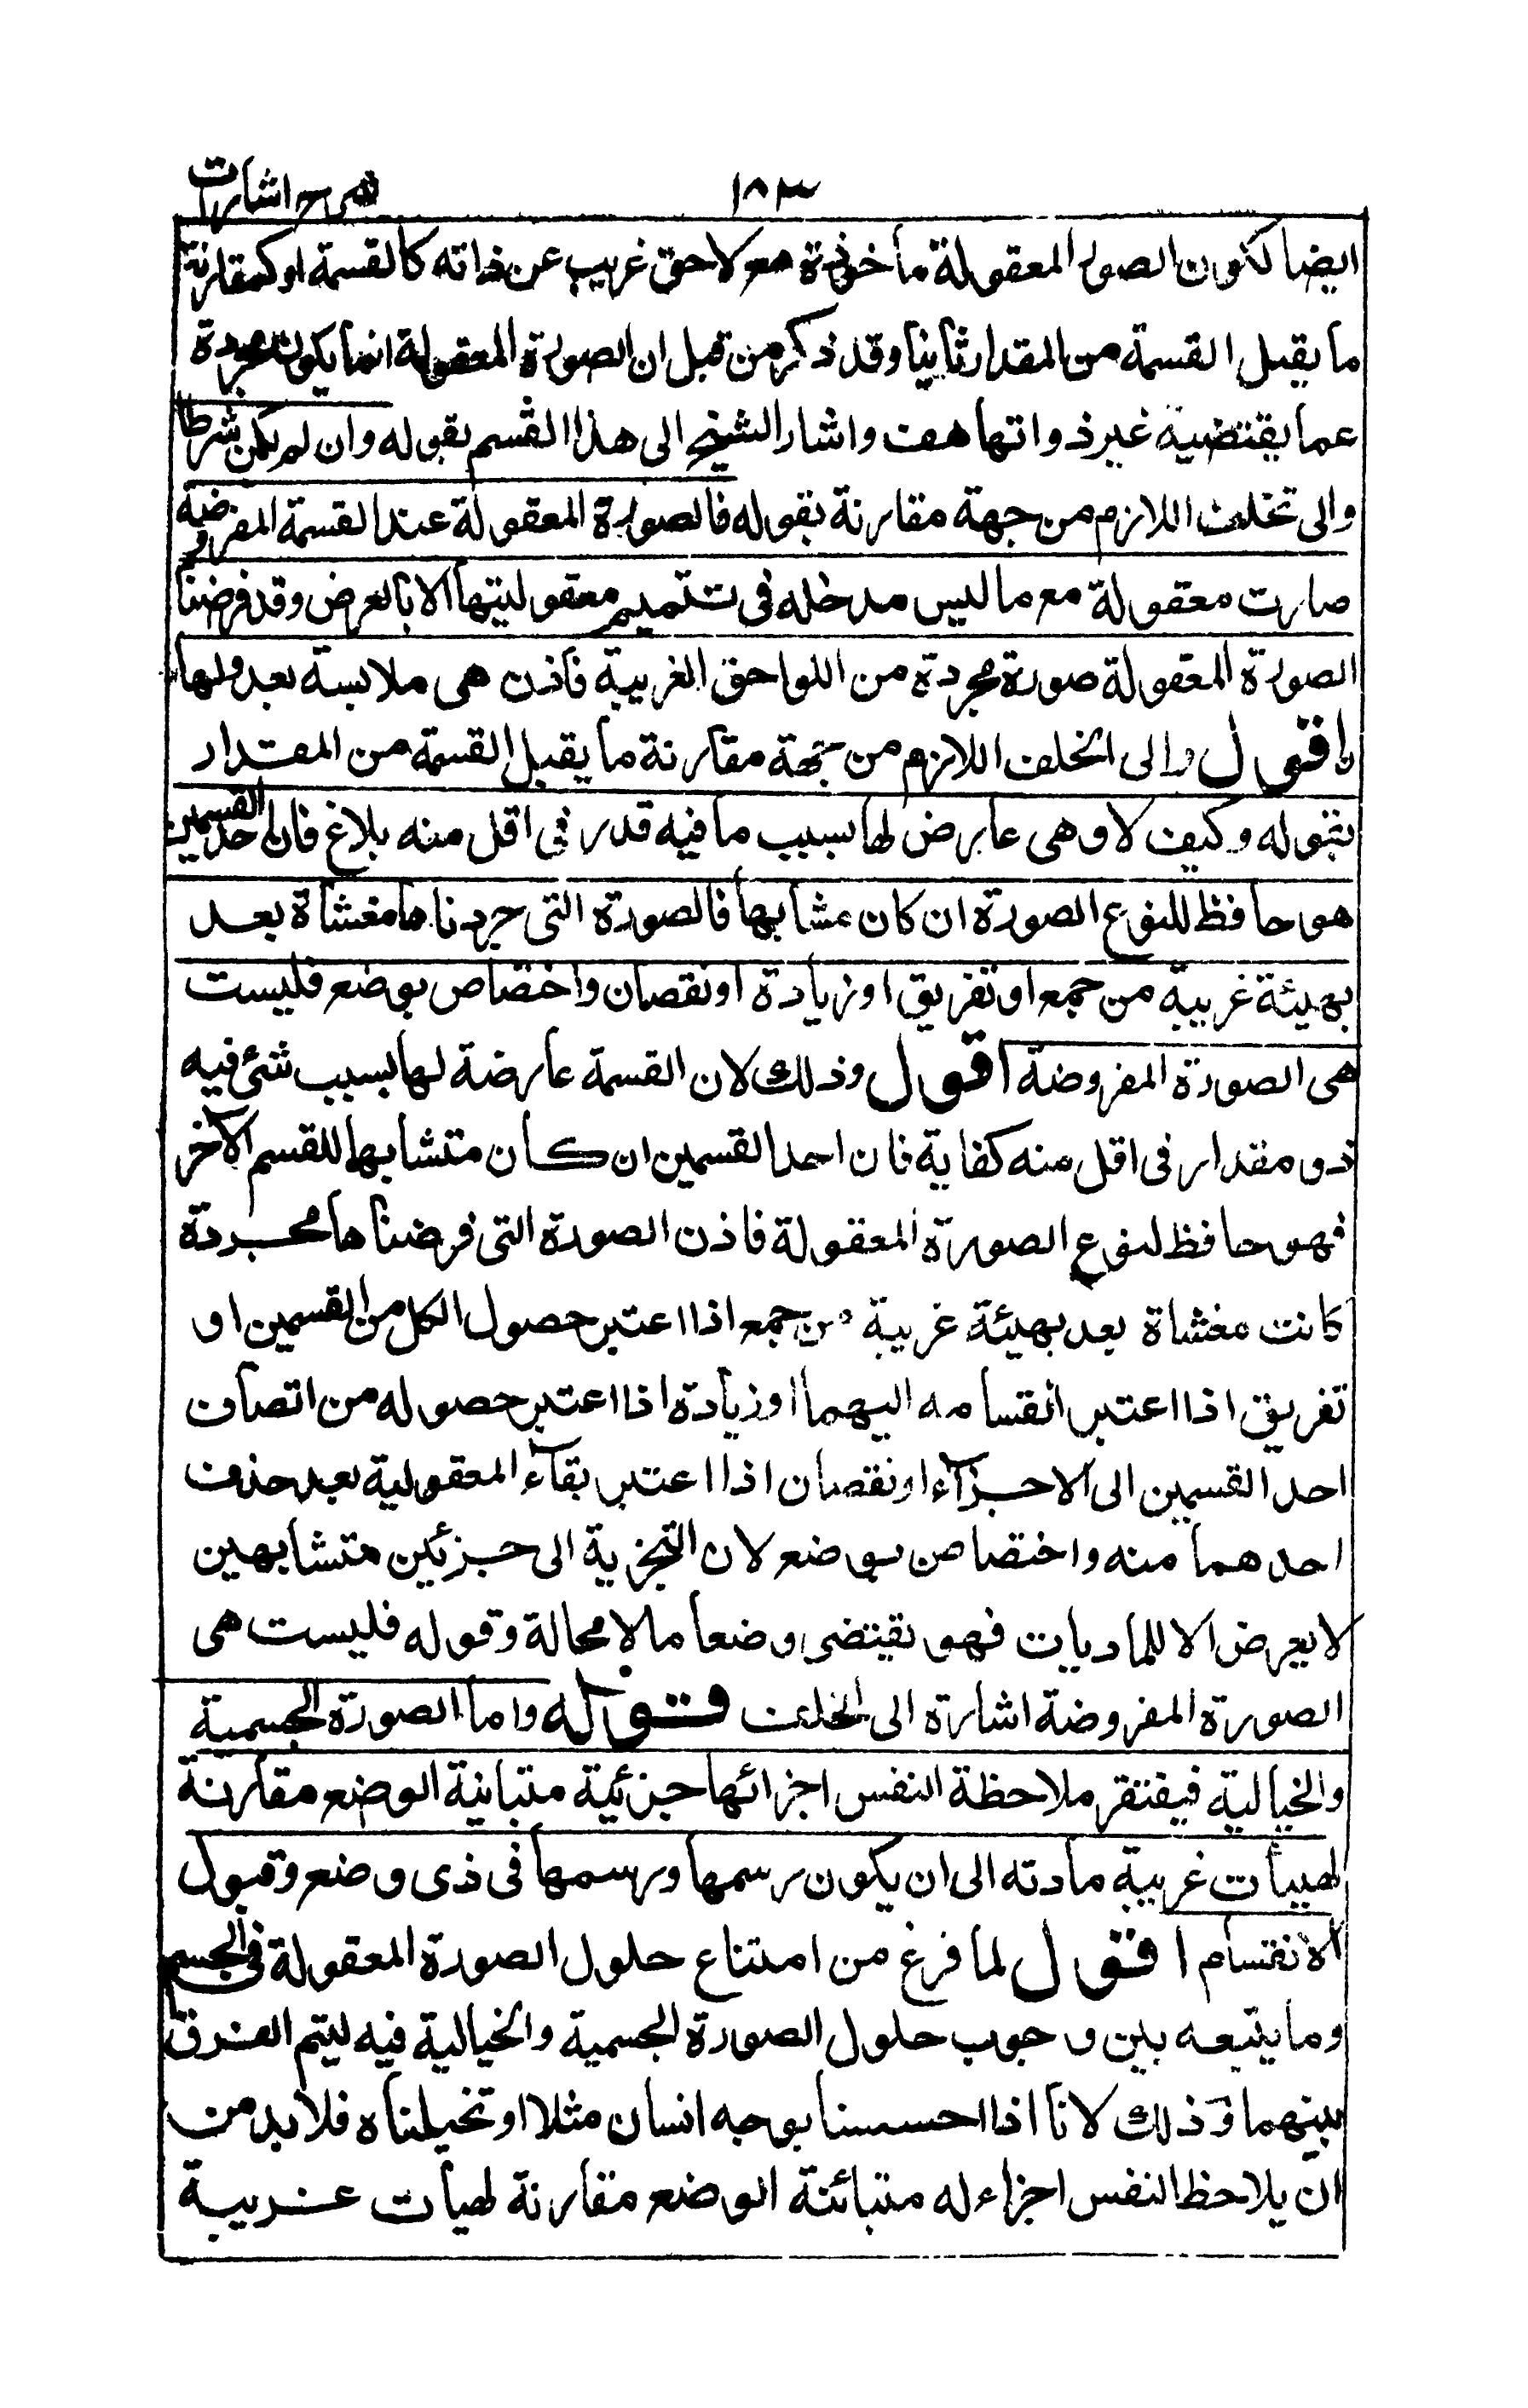 شرح اشارات
١٥٣
ايضا لكون الصور المعقولة مأخوذة مع لاحق غريب عن ذاته كالقسمة او كمقارنة
ما يقبل القسمة من المقدار ثانيا وقد ذكر من قبل ان الصورة المعقولة انما يكون مجردة
عما يقتضيه غير ذواتها هف واشار الشيخ الى هذا القسم بقوله وان لم يكن شرطا
والى تخلف اللازم من جهة مقارنة بقوله فالصورة المعقولة عند القسمة المفروضة
صارت معقولة مع ما ليس مدخله فى تتميم معقوليتها الا بالعرض وقد فرضنا
الصورة المعقولة صورة مجردة من اللواحق الغريبة فاذن هى ملابسة بعد ولها
اقول والى الخلف اللازم من جهة مقارنة ما يقبل القسمة من المقدار
بقوله وكيف لا وهى عارض لها بسبب ما فيه قدر فى اقل منه بلاغ فان احد القسمين
هو حافظ للنوع الصورة ان كان مشابها فالصورة التى جردناها مغشاة بعد
بهيئة غريبة من جمع او تفريق او زيادة او نقصان واختصاص بوضع فليست
هى الصورة المفروضة اقول وذلك لان القسمة عارضة لها بسبب شئ فيه
ذو مقدار فى اقل منه كفاية فان احد القسمين ان كان متشابها للقسم الآخر
فهو حافظ لنوع الصورة المعقولة فاذن الصورة التى فرضناها مجردة
كانت مغشاة بعد بهيئة غريبة من جمع اذا اعتبر حصول الكل من القسمين او
تفريق اذا اعتبر انقسامه اليهما او زيادة اذا اعتبر حصوله من اتصاف
احد القسمين الى الاجزآء او نقصان اذا اعتبر بقآء المعقولية بعد حذف
احدهما منه واختصاص بوضع لان التجزية الى جزئين متشابهين
لا يعرض الا للماديات فهو يقتضى وضعا ما لا محالة وقوله فليست هى
الصورة المفروضة اشارة الى الخلف قوله واما الصورة الجسمية
والخيالية فيفتقر ملاحظة النفس اجزائها جزئية متباينة الوضع مقارنة
لهيأت غريبة مادته الى ان يكون رسمها ورسمها فى ذى وضع وقبول
الانقسام اقول لما فرغ من امتناع حلول الصورة المعقولة فى الجسم
وما يتبعه بين وجوب حلول الصورة الجسمية والخيالية فيه ليتم الفرق
بينهما وذلك لانا اذا احسسنا بوجه انسان مثلا او تخيلناه فلا بد من
ان يلاحظ النفس اجزاء له متبائنة الوضع مقارنة لهيأت غريبة